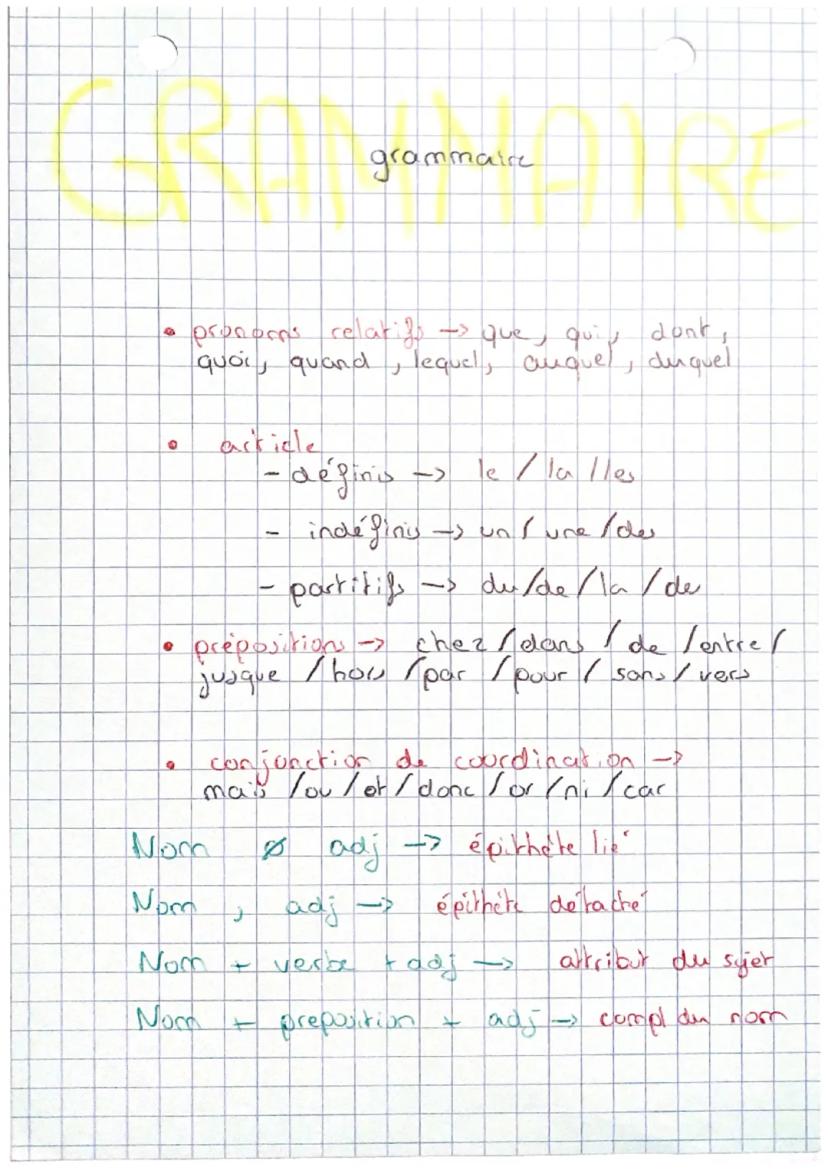 GRAMMAIRE
grammaire
• pronoms relatifs -> que, qui, dont,
quoi, quand, lequel, auquel, duquel
• article
- définis -> le / la / les
- indéfinis -> un / une / des
- partitifs -> du / de / la / de
• préposition -> chez / dans / de / entre /
jusque / hors / par / pour / sans / vers
• conjonction de coordination ->
mais / ou / et / donc / or / ni / car
Nom Ø adj -> épithète lié
Nom , adj -> épithète détaché
Nom + verbe + adj -> attribut du sujet
Nom + preposition + adj -> compl du nom